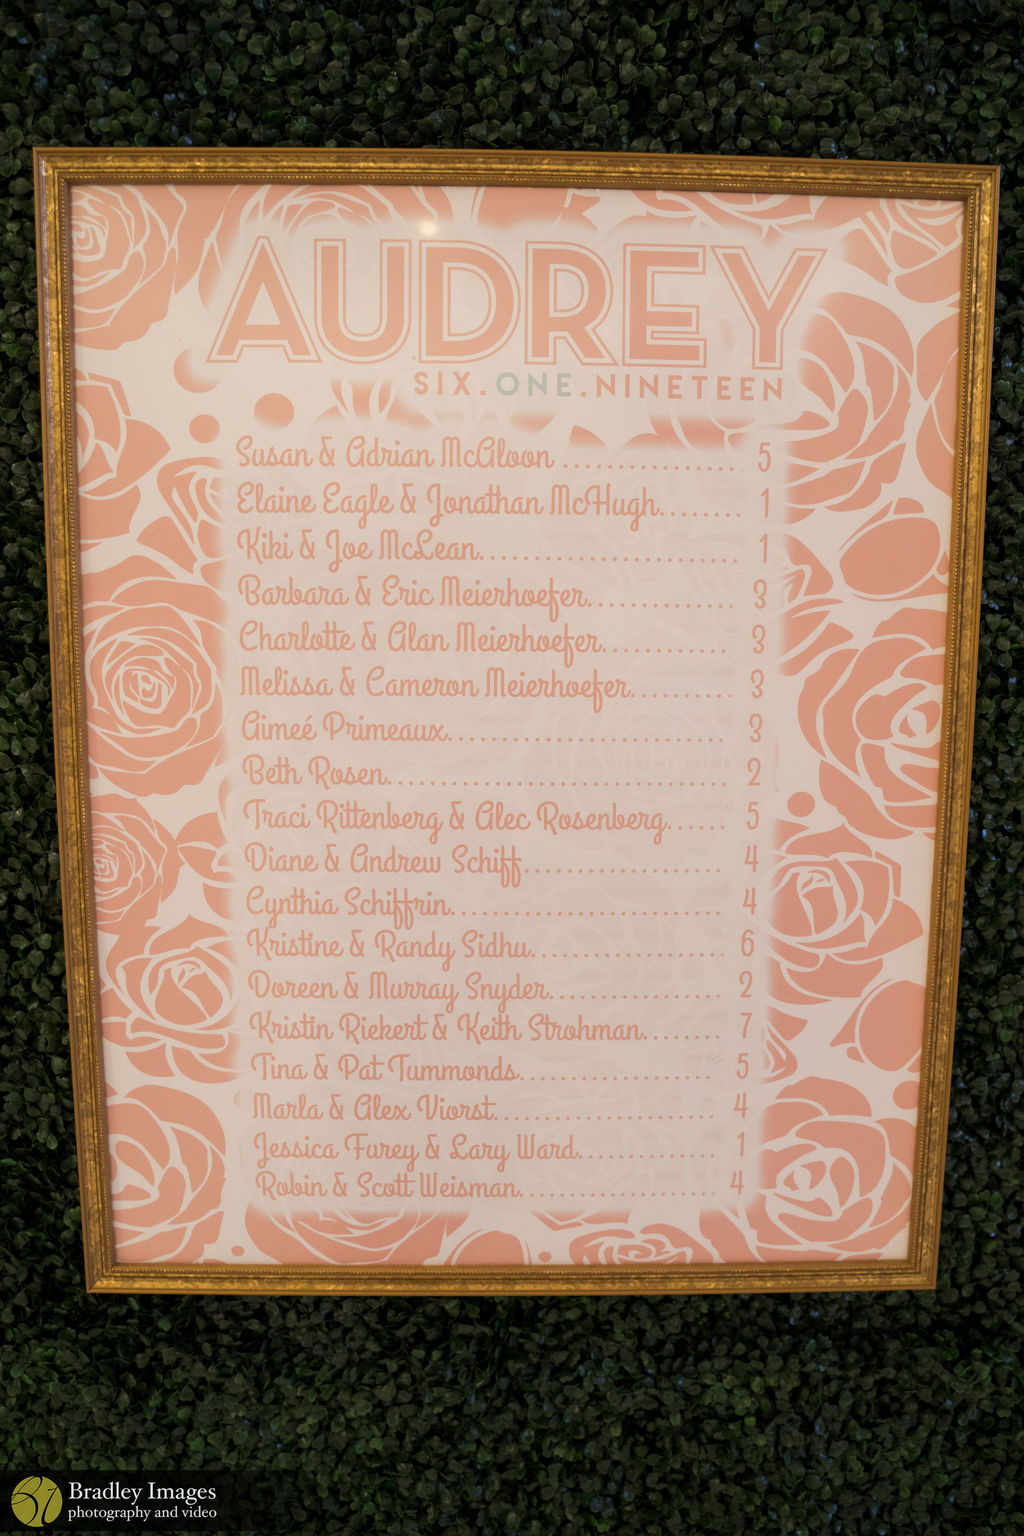 AUDREY
SIX.ONE.NINETEEN
Susan & Adrian McAloon ................ 5
Elaine Eagle & Jonathan McHugh........ 1
Kiki & Joe McLean........................ 1
Barbara & Eric Meierhoefer............. 3
Charlotte & Alan Meierhoefer........... 3
Melissa & Cameron Meierhoefer......... 3
Aimeé Primeaux.......................... 3
Beth Rosen................................ 2
Traci Rittenberg & Alec Rosenberg...... 5
Diane & Andrew Schiff.................. 4
Cynthia Schiffrin......................... 4
Kristine & Randy Sidhu.................. 6
Doreen & Murray Snyder................ 2
Kristin Riekert & Keith Strohman....... 7
Tina & Pat Tummonds.................. 5
Marla & Alex Viorst..................... 4
Jessica Furey & Lary Ward............. 1
Robin & Scott Weisman.................. 4
Bradley Images
photography and video